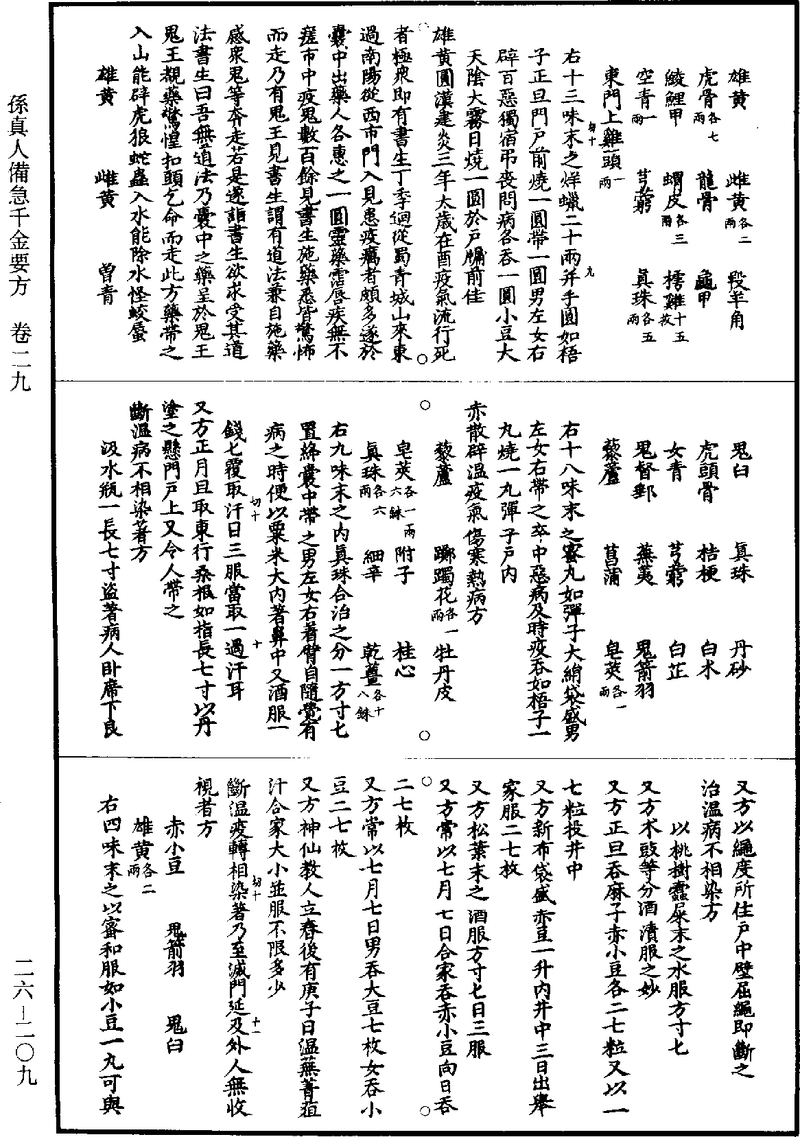 雄黄　雌黄各二兩　羖羊角
虎骨各七兩　龍骨　龜甲
鯪鯉甲　蝟皮各三兩　樗雞十五枚
空青一兩　芎藭　真珠各五兩
東門上雞頭一兩
右十三味末之烊蠟二十兩并手圓如梧
子正旦門戶前燒一圓帶一圓男左女右
辟百惡獨宿弔喪問病各吞一圓小豆大
天陰大霧日燒一圓於戶牖前佳
雄黄圓漢建炎三年太歲在酉疫氣流行死
者極衆即有書生丁季迴從蜀青城山來東
過南陽從西市門入見患疫癘者頗多遂於
囊中出藥人各惠之一圓靈藥霑唇疾無不
瘥市中疫鬼數百餘見書生施藥悉皆驚怖
而走乃有鬼王見書生謂有道法兼自施藥
感衆鬼等奔走若是遂詣書生欲求受其道
法書生曰吾無道法乃囊中之藥呈於鬼王
鬼王覩藥驚惶扣頭乞命而走此方藥帶之
入山能辟虎狼蛇蟲入水能除水怪蛟蜃
雄黄　雌黄　曾青
鬼臼　真珠　丹砂
虎頭骨　桔梗　白术
女青　芎藭　白芷
鬼督郵　蕪荑　鬼箭羽
藜蘆　菖蒲　皂莢各一兩
右十八味末之蜜丸如彈子大絹袋盛男
左女右帶之卒中惡病及時疫吞如梧子一
丸燒一丸彈子戶內
赤散辟溫疫氣傷寒熱病方
藜蘆　躑躅花各一兩　牡丹皮
皂莢各一兩六銖　附子　桂心
真珠各六兩　細辛　乾薑各十八銖
右九味末之內真珠合治之分一方寸七
置綿囊中帶之男左女右著臂自隨覺有
病之時便以粟米大內著鼻中又酒服一
錢七覆取汗日三服當取一過汗耳
又方正月旦取東行桑根如指長七寸以丹
塗之懸門戶上又令人帶之
斷溫病不相染著方
汲水瓶一長七寸盜著病人臥席下良
又方以繩度所住戶中壁屈繩即斷之
治溫病不相染方
以桃樹蠹屎末之水服方寸七
又方术豉等分酒漬服之妙
又方正旦吞麻子赤小豆各二七粒又以一
七粒投井中
又方新布袋盛赤豆一升內井中三日出舉
家服二七枚
又方松葉末之酒服方寸七日三服
又方常以七月七日合家吞赤小豆向日吞
二七枚
又方常以七月七日男吞大豆七枚女吞小
豆二七枚
又方神仙教人立春後有庚子日溫蕪菁菹
汁合家大小並服不限多少
斷溫疫轉相染著乃至滅門延及外人無收
視者方
赤小豆　鬼箭羽　鬼臼
雄黄各二兩
右四味末之以蜜和服如小豆一丸可與
孫真人備急千金要方　卷二九
二六—二〇九